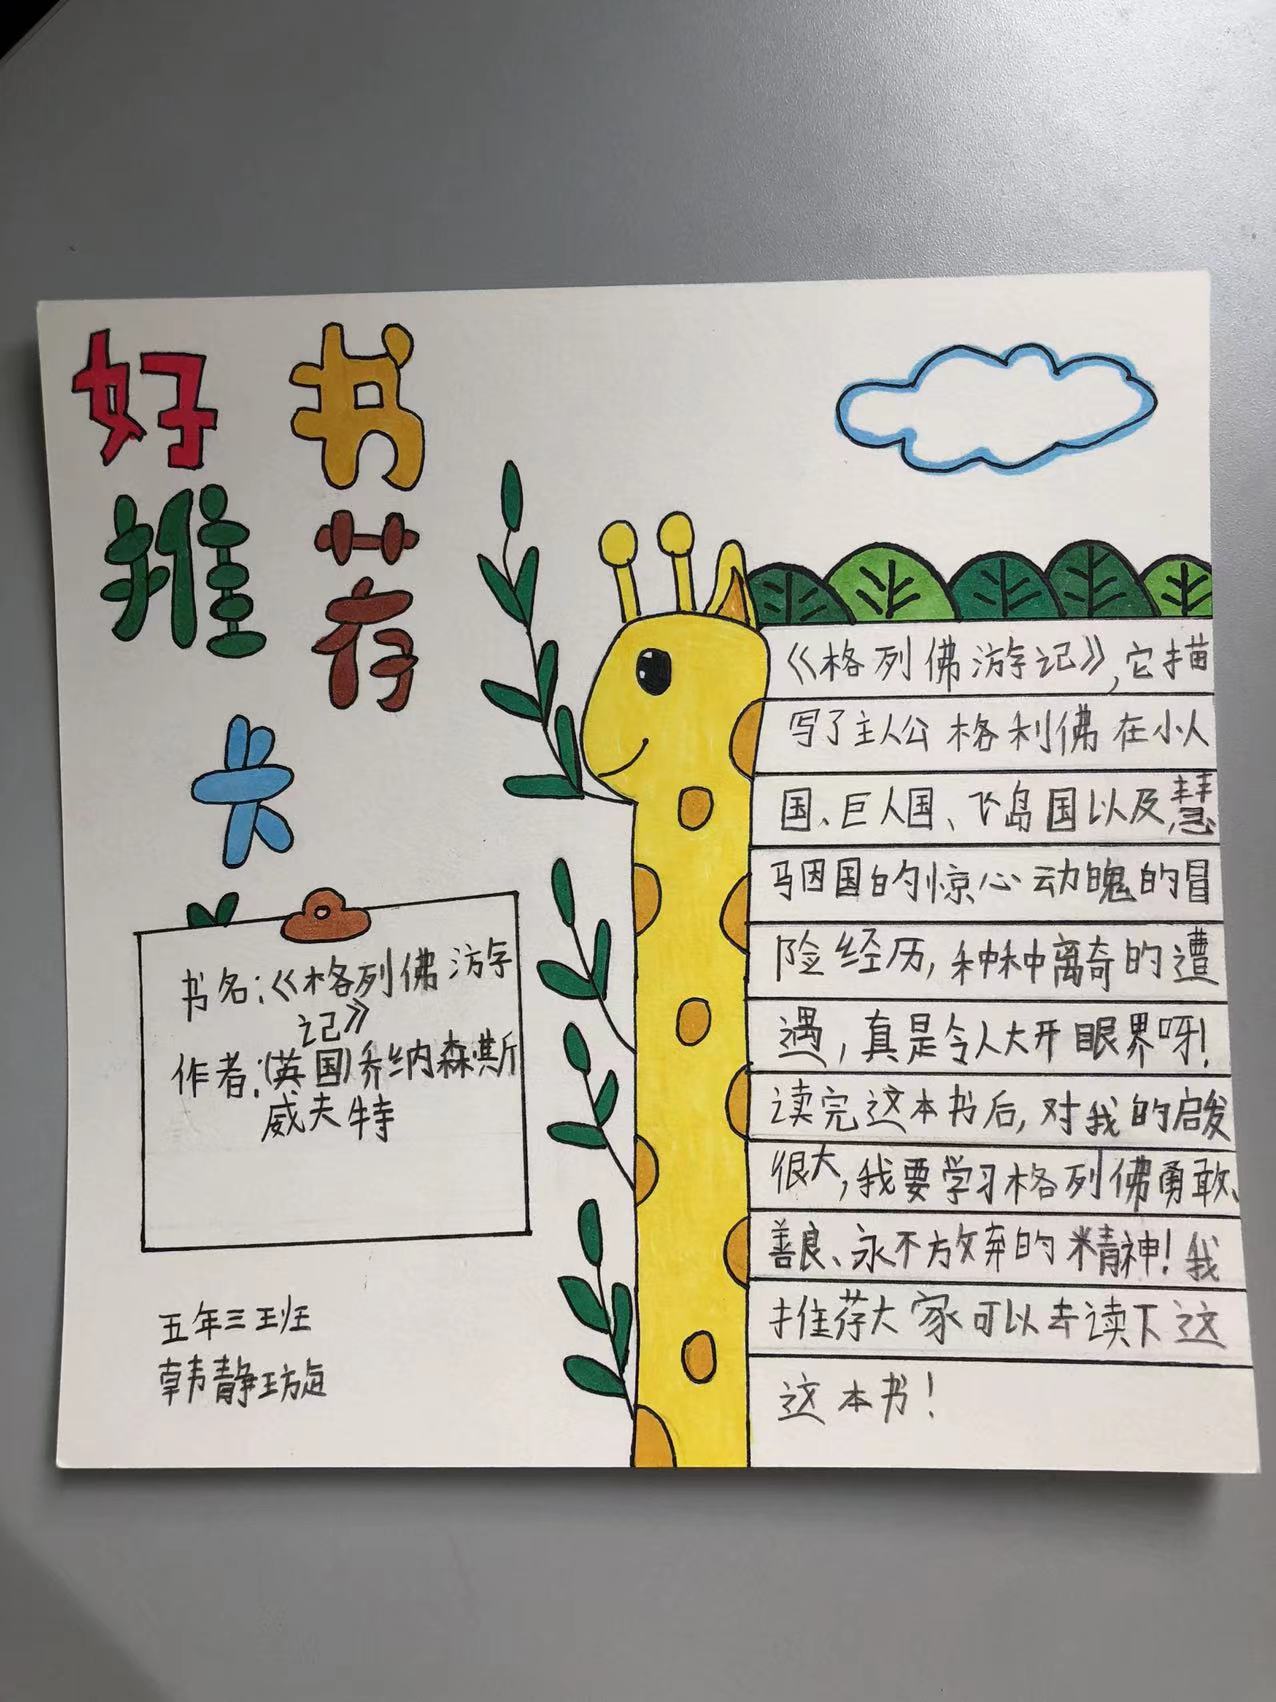 好书
推荐
卡
书名:《格列佛游
记》
作者:(英国)乔纳森斯
威夫特
五年三班
韩静璇
《格列佛游记》,它描
写了主人公格利佛在小人
国、巨人国、飞岛国以及慧
骃国的惊心动魄的冒
险经历,种种离奇的遭
遇,真是令人大开眼界呀!
读完这本书后,对我的启发
很大,我要学习格列佛勇敢、
善良、永不放弃的精神!我
推荐大家可以去读下这
这本书!